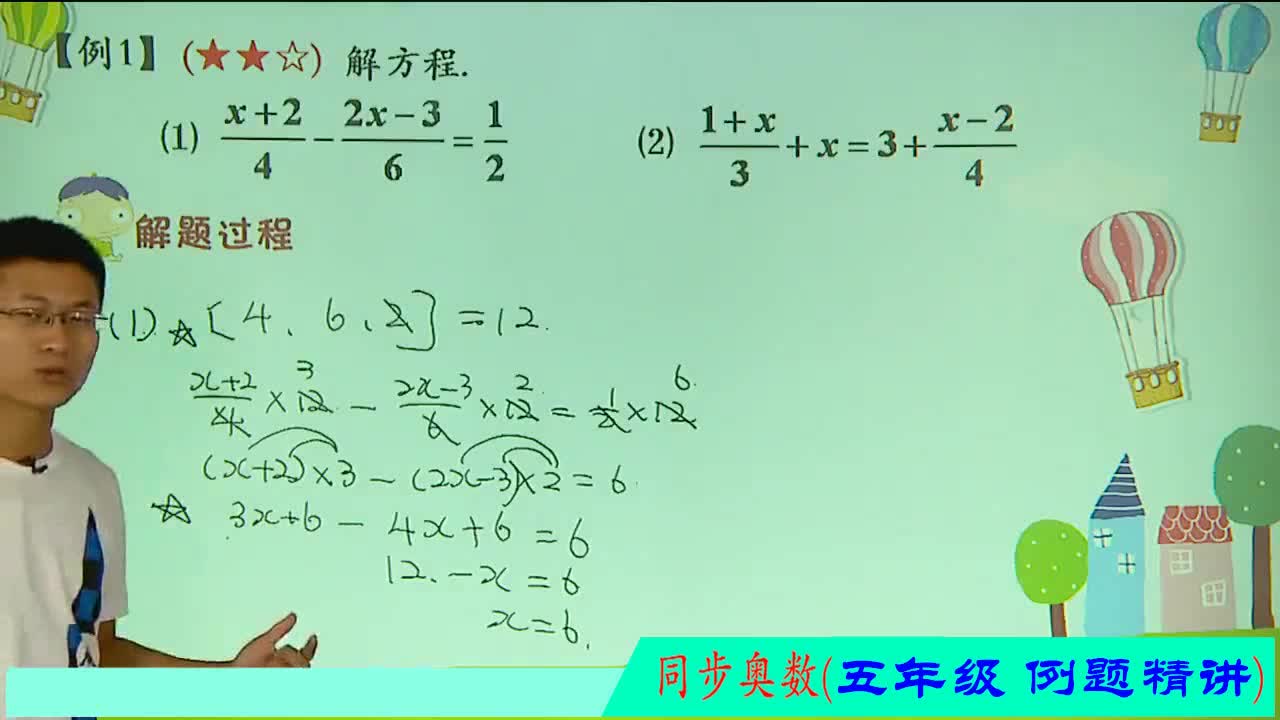 【例1】(★★☆) 解方程.
(1) \frac{x+2}{4} - \frac{2x-3}{6} = \frac{1}{2}
(2) \frac{1+x}{3} + x = 3 + \frac{x-2}{4}
解题过程
(1). ☆ [4、6、2] = 12.
\frac{x+2}{4} × 12 - \frac{2x-3}{6} × 12 = \frac{1}{2} × 12
3 2 6.
(x+2)×3 - (2x-3)×2 = 6.
☆ 3x+6 - 4x+6 = 6
12. - x = 6
x = 6.
同步奥数(五年级 例题精讲)